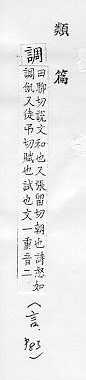 類篇
調
田聊切說文和也又張留切朝也詩惄如
調飢又徒吊切賦也試也文一重音二
(言,